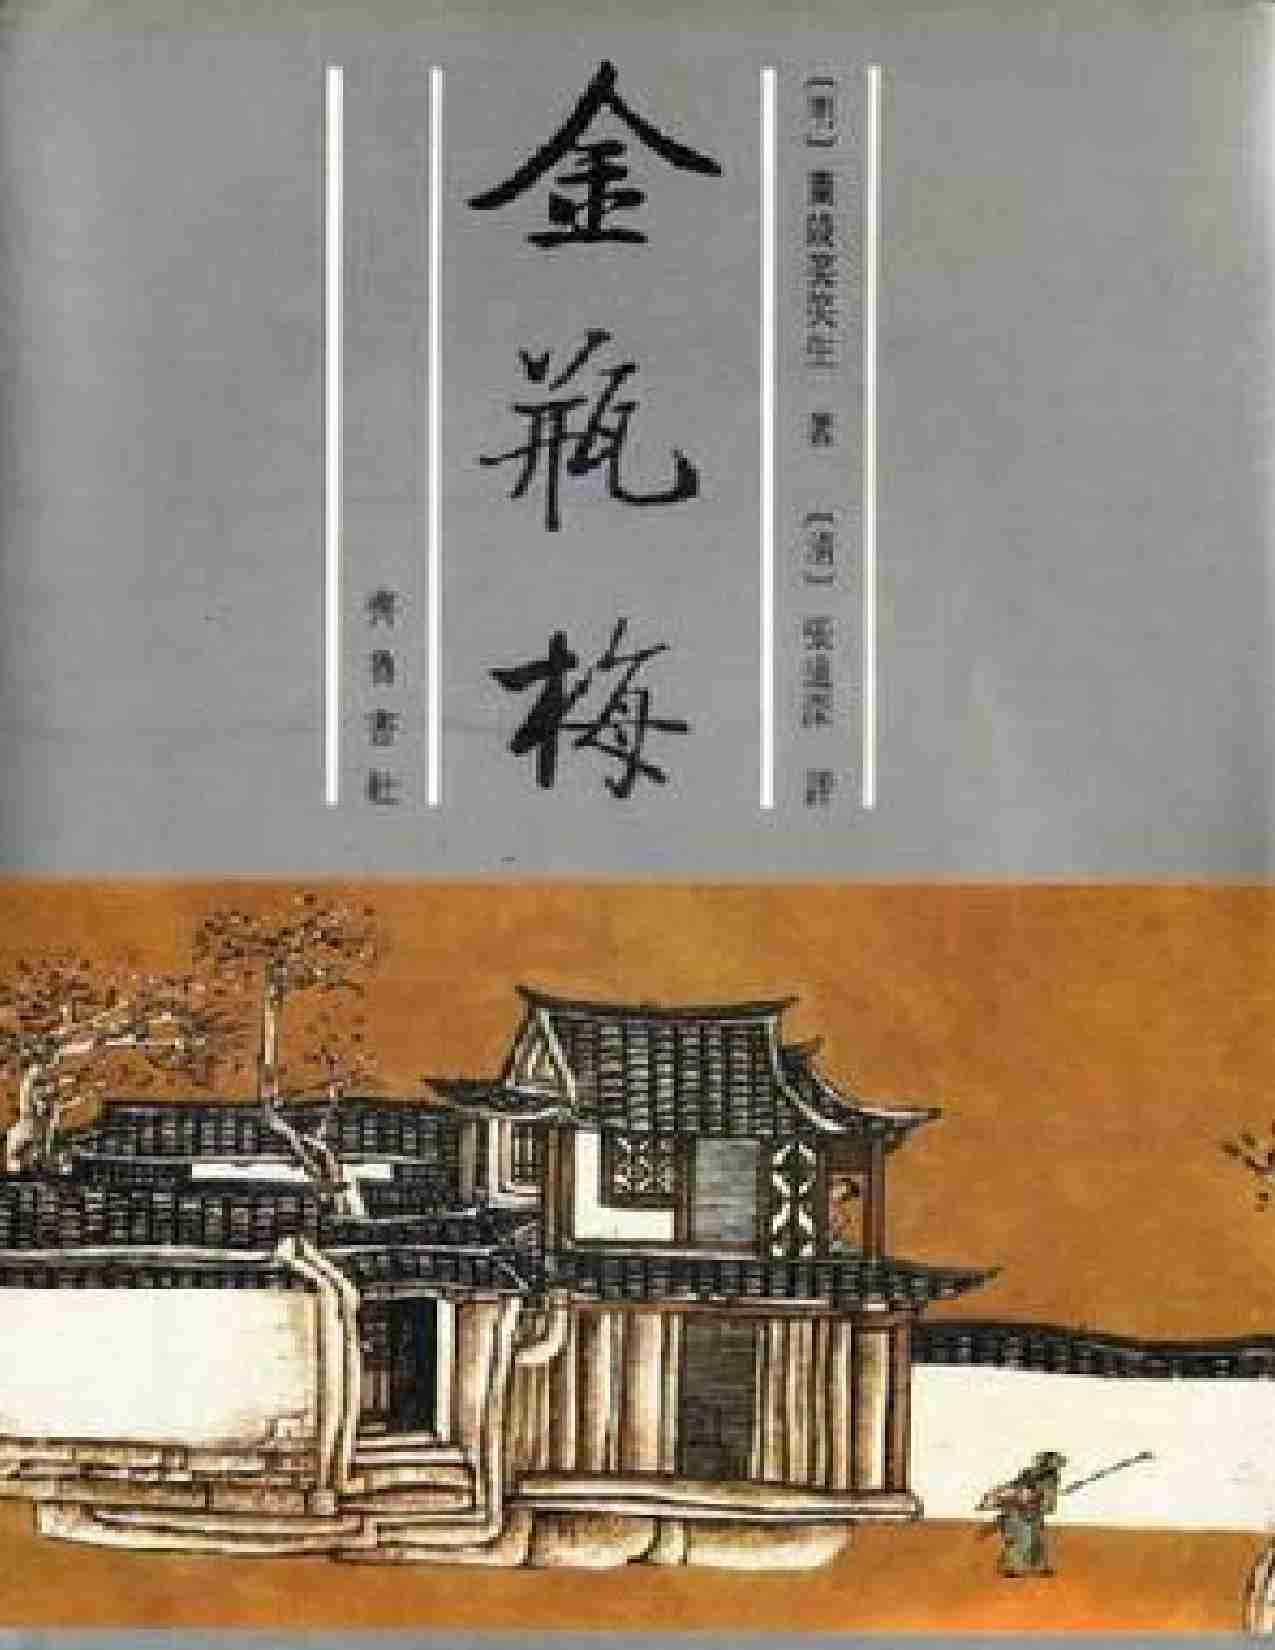 [明] 蘭陵笑笑生 著 [清] 張道深 評
金瓶梅
齊魯書社